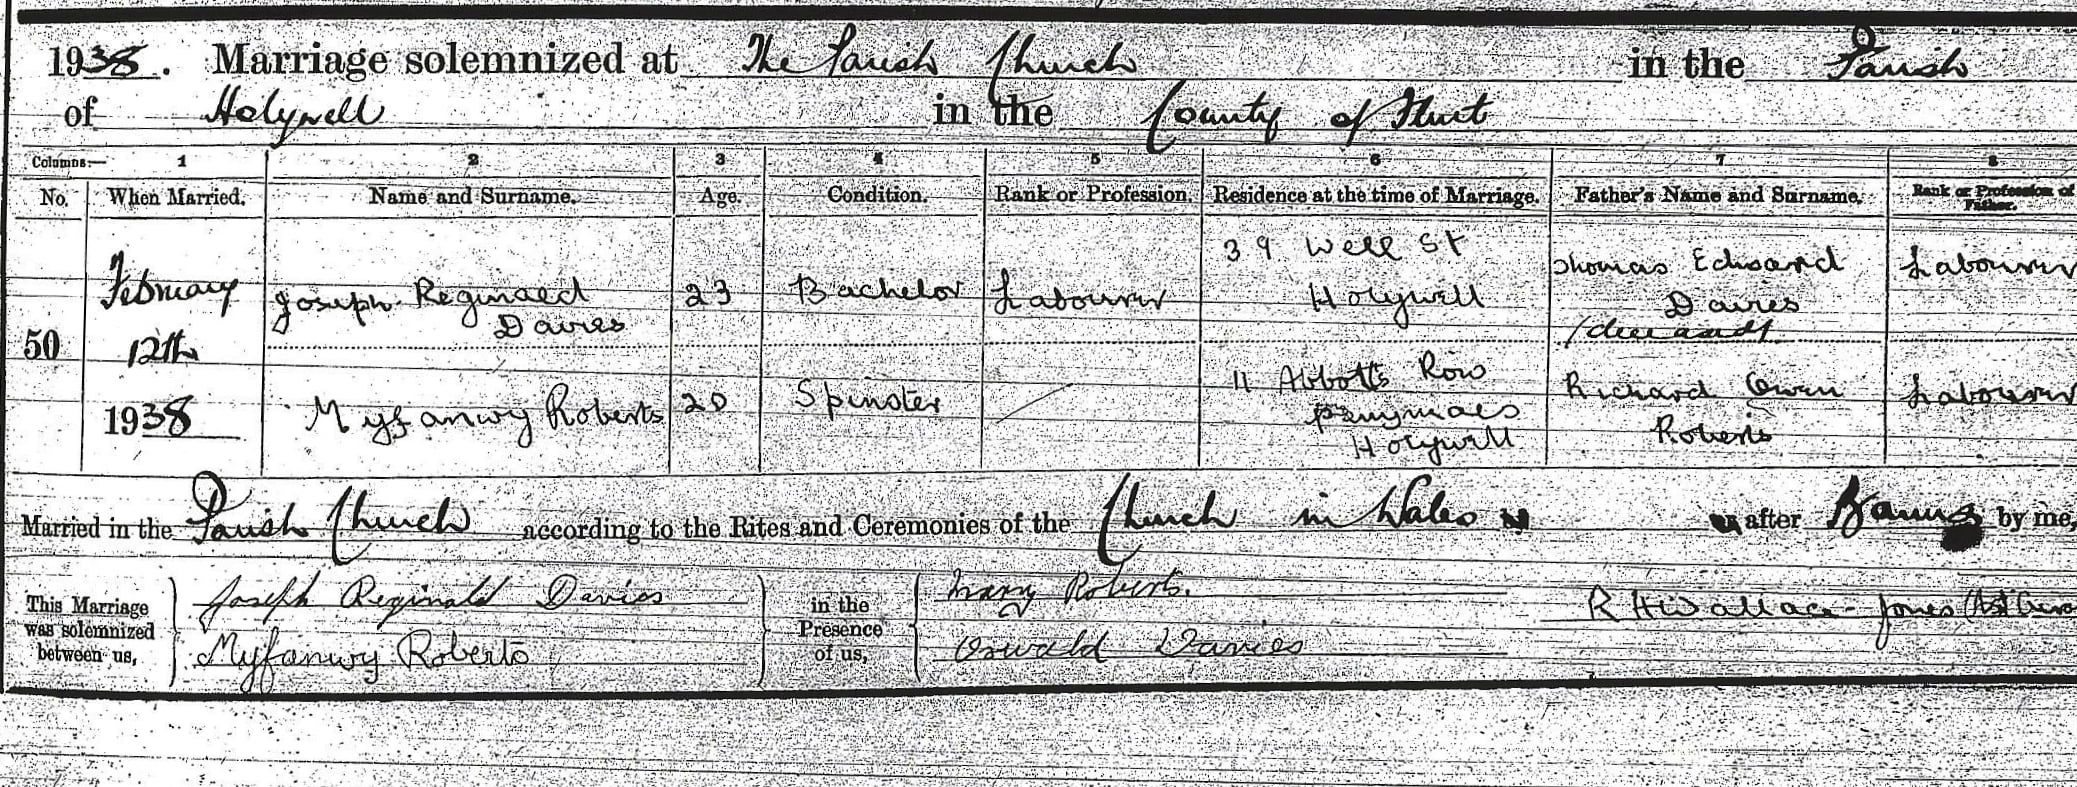 1938. Marriage solemnized at The Parish Church in the Parish
of Holywell in the County of Flint
Columns:— 1 2 3 4 5 6 7 8
No. When Married. Name and Surname. Age. Condition. Rank or Profession. Residence at the time of Marriage. Father's Name and Surname. Rank or Profession of Father.
50
February
12th
1938
Joseph Reginald
Davies
23
Bachelor
Labourer
39 Well St
Holywell
Thomas Edward
Davies
(deceased)
Labourer
Myfanwy Roberts
20
Spinster
11 Abbotts Row
Penymaes
Holywell
Richard Owen
Roberts
Labourer
Married in the Parish Church according to the Rites and Ceremonies of the Church in Wales after Banns by me,
This Marriage
was solemnized
between us,
Joseph Reginald Davies
Myfanwy Roberts
in the
Presence
of us,
Mary Roberts.
Oswald Davies
R H Wallace-Jones